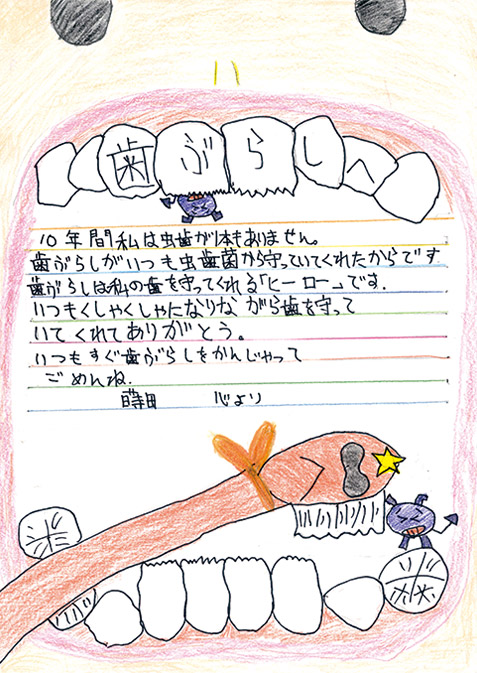 歯ぶらしへ
10年間私は虫歯が1本もありません。
歯ぶらしがいつも虫歯菌から守っていてくれたからです
歯ぶらしは私の歯を守ってくれる「ヒーロー」です.
いつもくしゃくしゃになりながら歯を守って
いてくれてありがとう。
いつもすぐ歯ぶらしをかんじゃって
ごめんね.
蒔田 心より